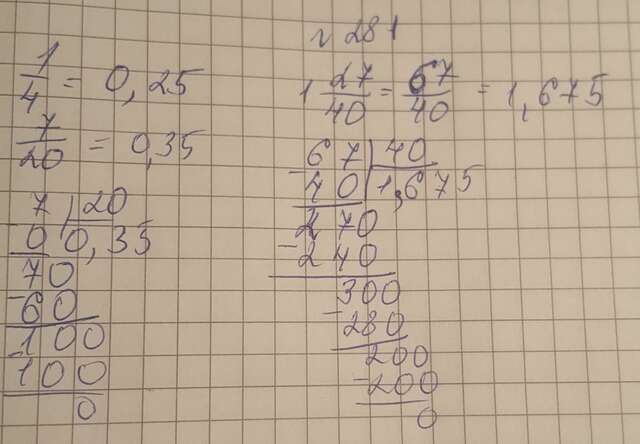 № 281
1/4 = 0,25
7/20 = 0,35
7 | 20
- 0 | 0,35
70
- 60
100
- 100
0
1 27/40 = 67/40 = 1,675
- 67 | 40
40 | 1,675
270
- 240
300
- 280
200
- 200
0